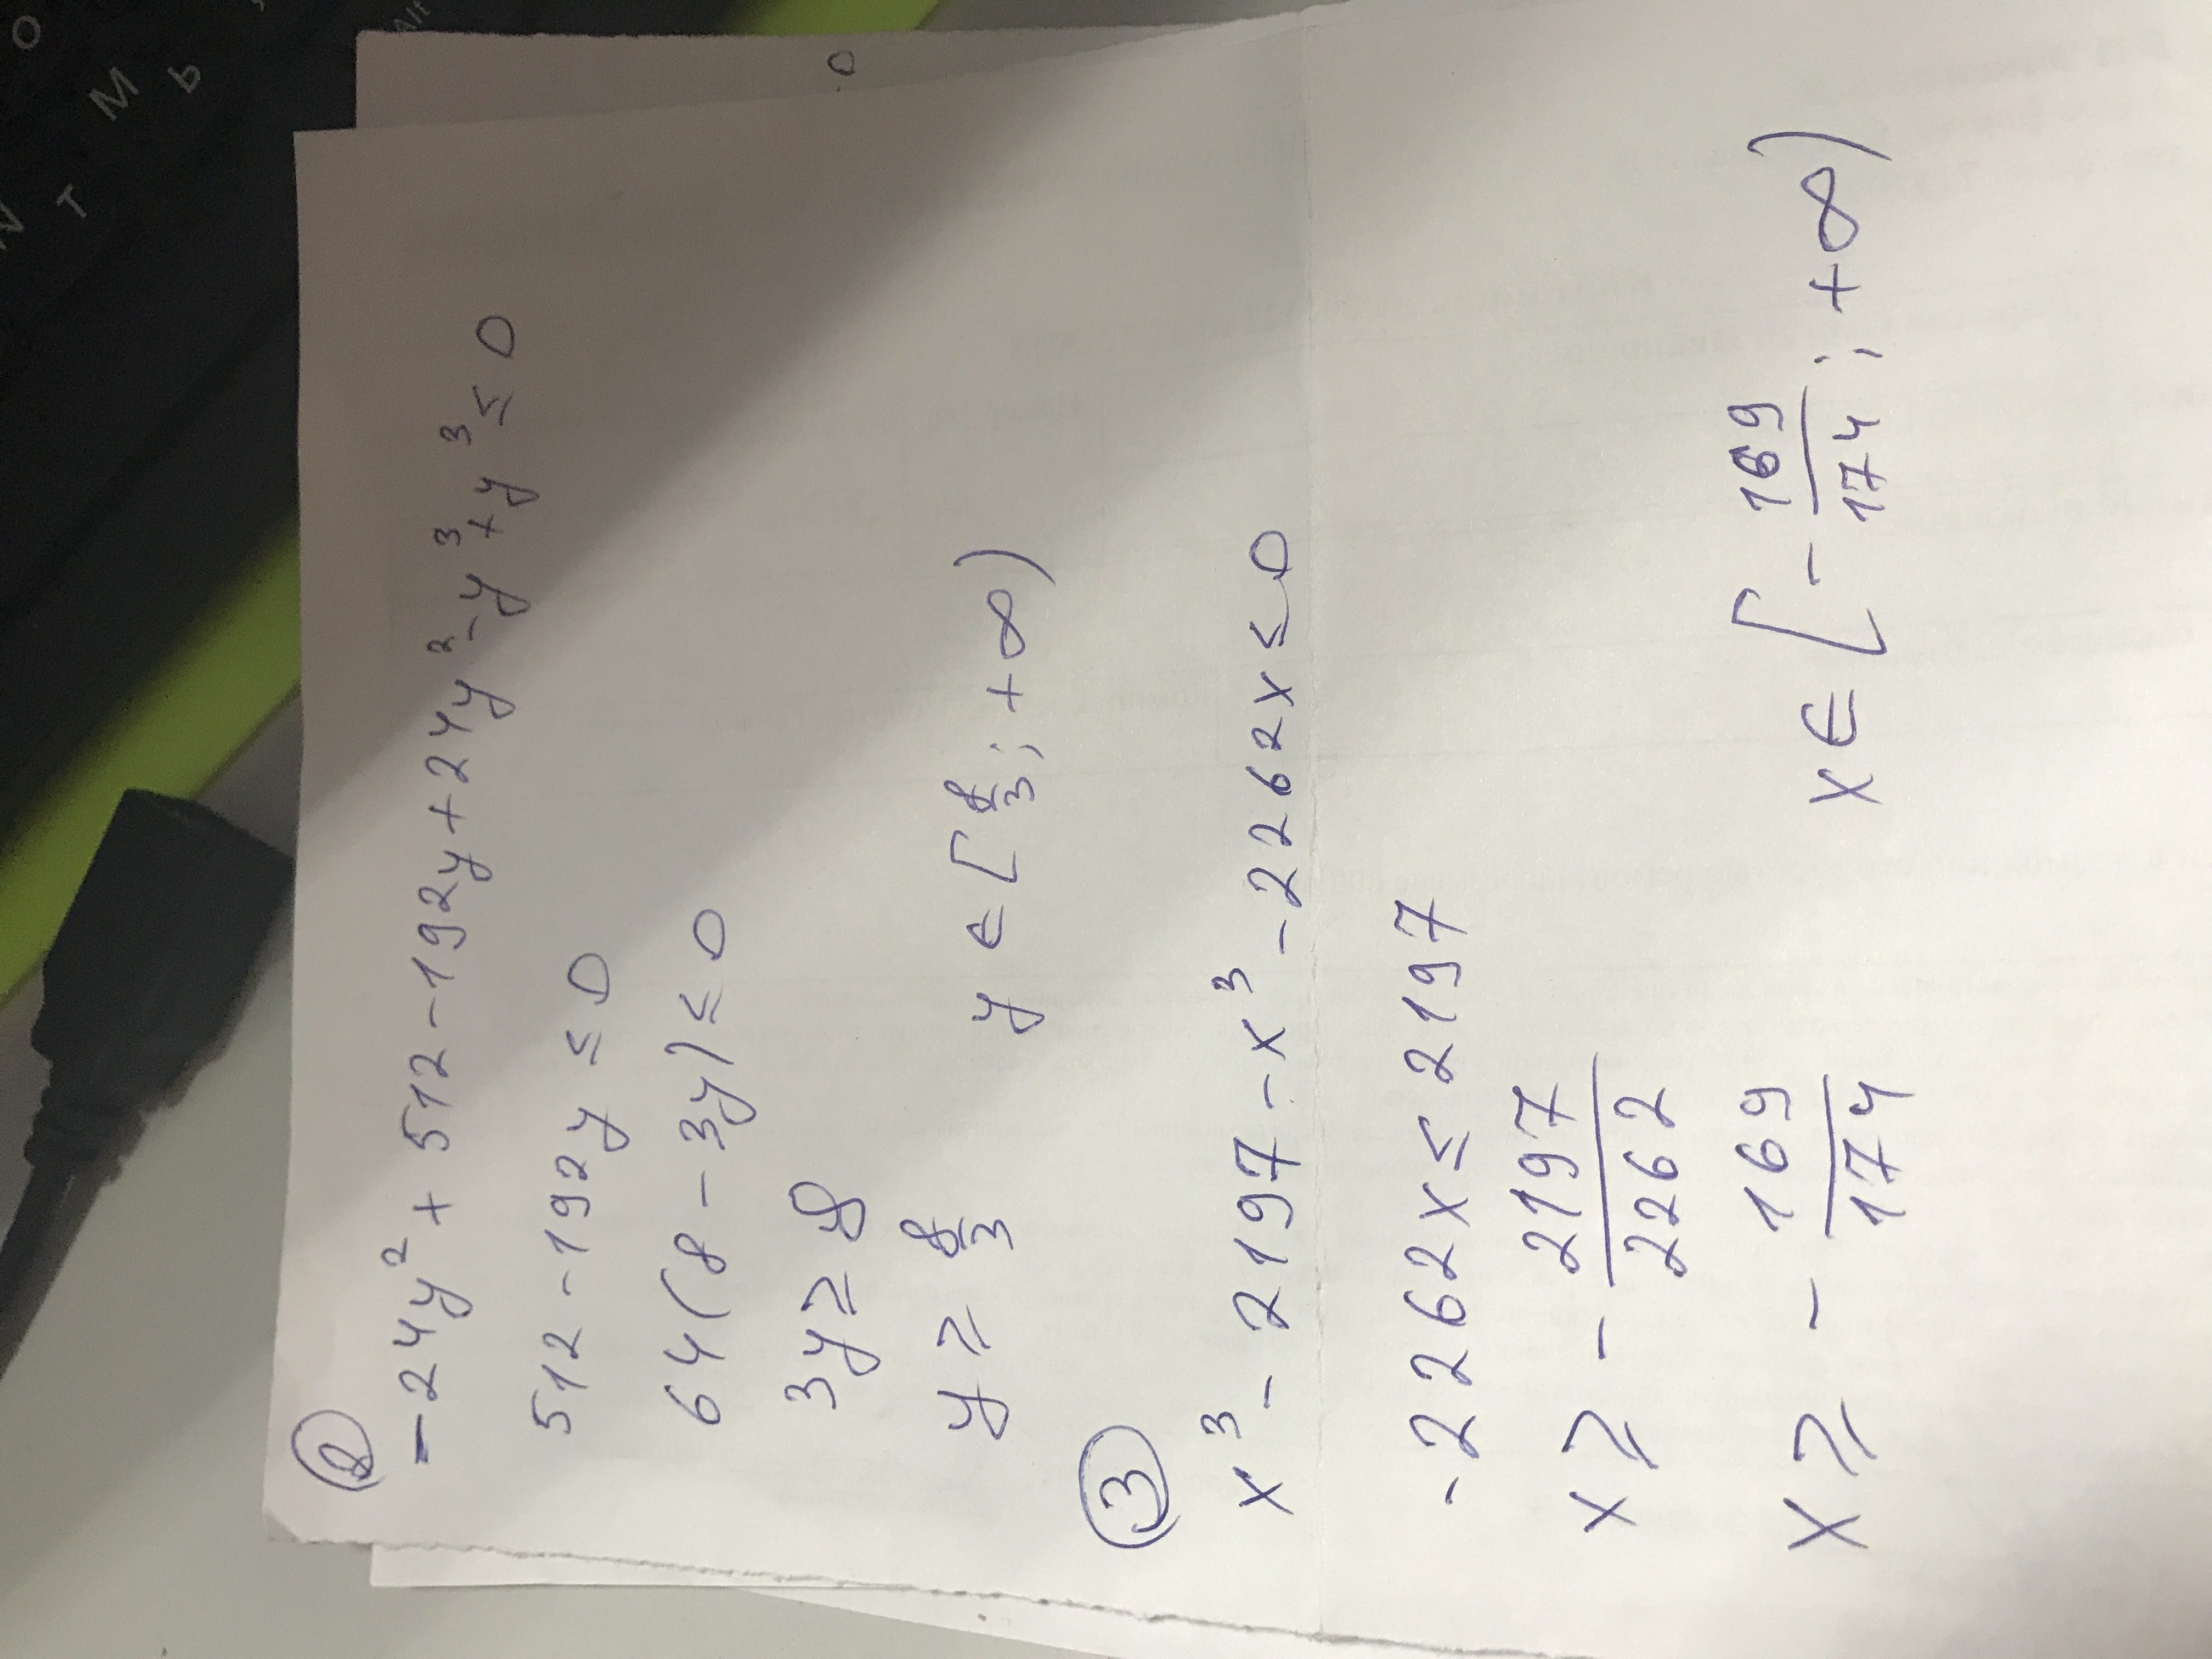 ②
-24y² + 512 - 192y + 24y² - y³ + y³ ≤ 0
512 - 192y ≤ 0
64(8 - 3y) ≤ 0
3y ≥ 8
y ≥ 8/3
y ∈ [8/3; +∞)
③
x³ - 2197 - x³ - 2262x ≤ 0
-2262x ≤ 2197
x ≥ - 2197/2262
x ≥ - 169/174
x ∈ [- 169/174; +∞)
O
M
Ь
Т
N
Alt